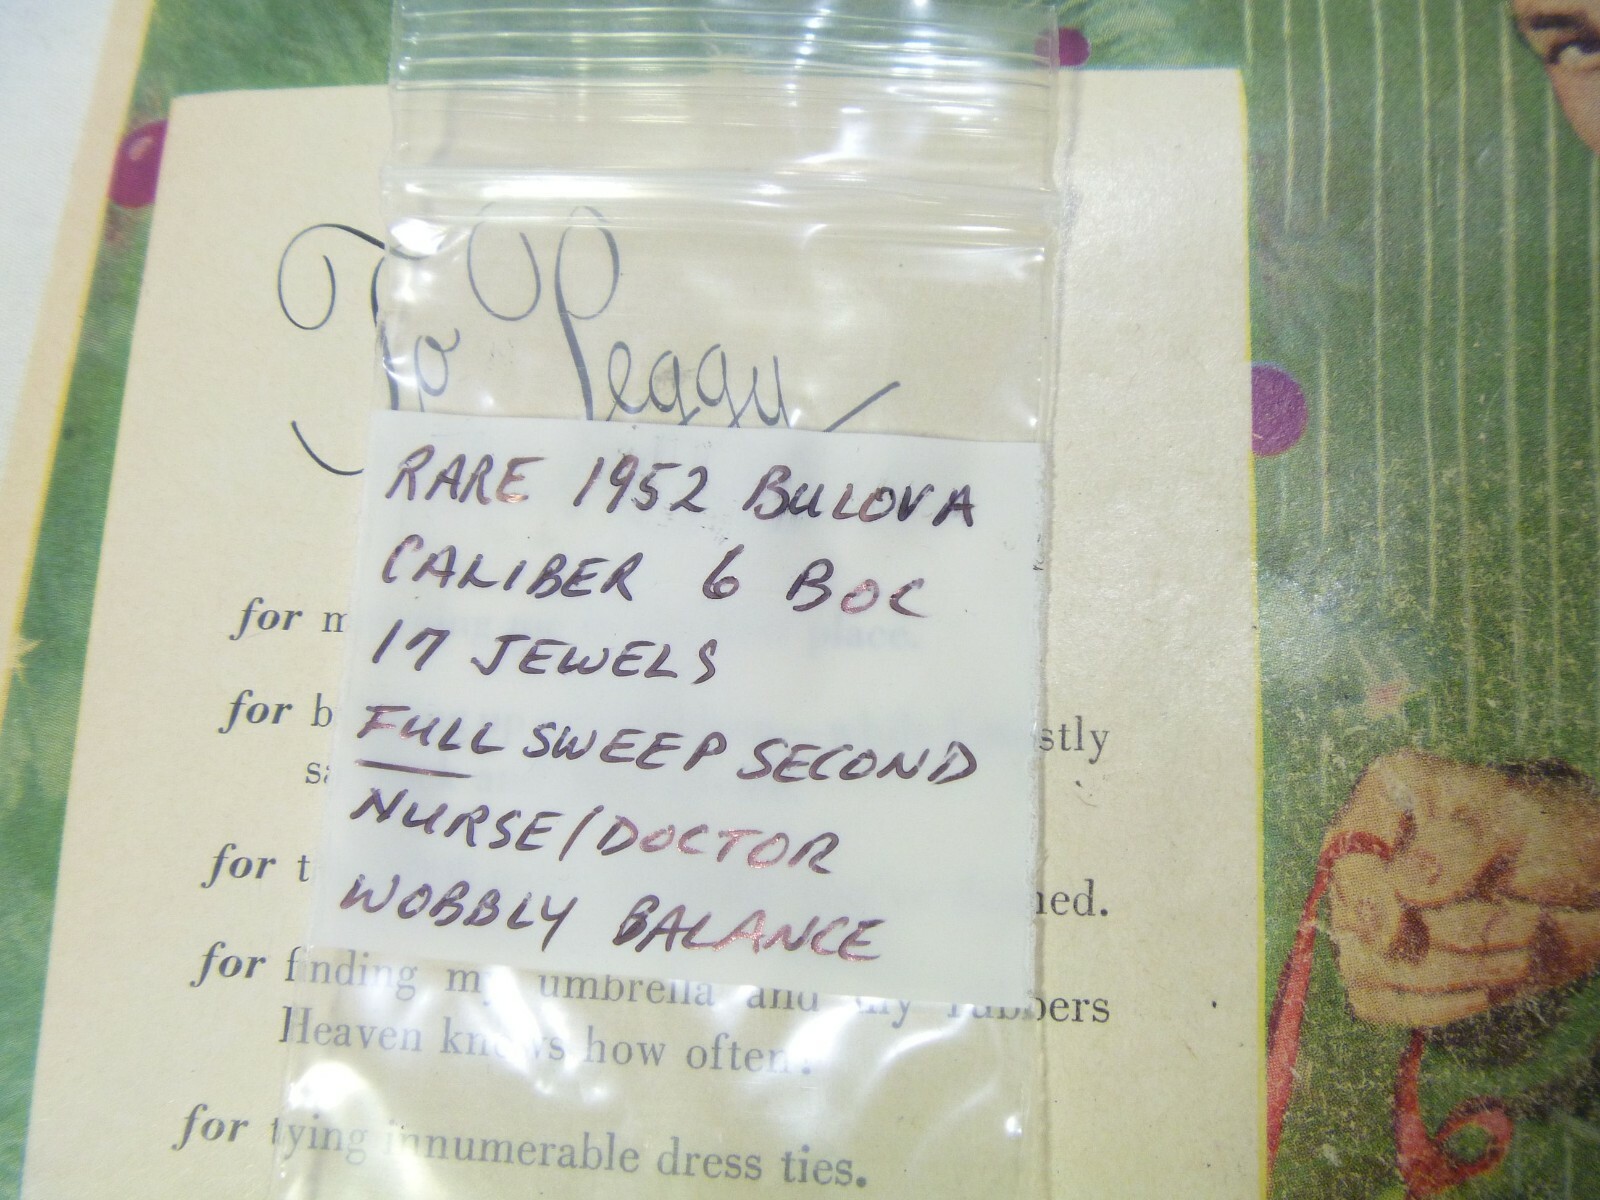 To Peggy
RARE 1952 BULOVA
CALIBER 6 BOC
17 JEWELS
FULL SWEEP SECOND
NURSE/DOCTOR
WOBBLY BALANCE
for m place.
for b stly
sa
for t ned.
for finding my umbrella and my rubbers
Heaven knows how often!
for tying innumerable dress ties.